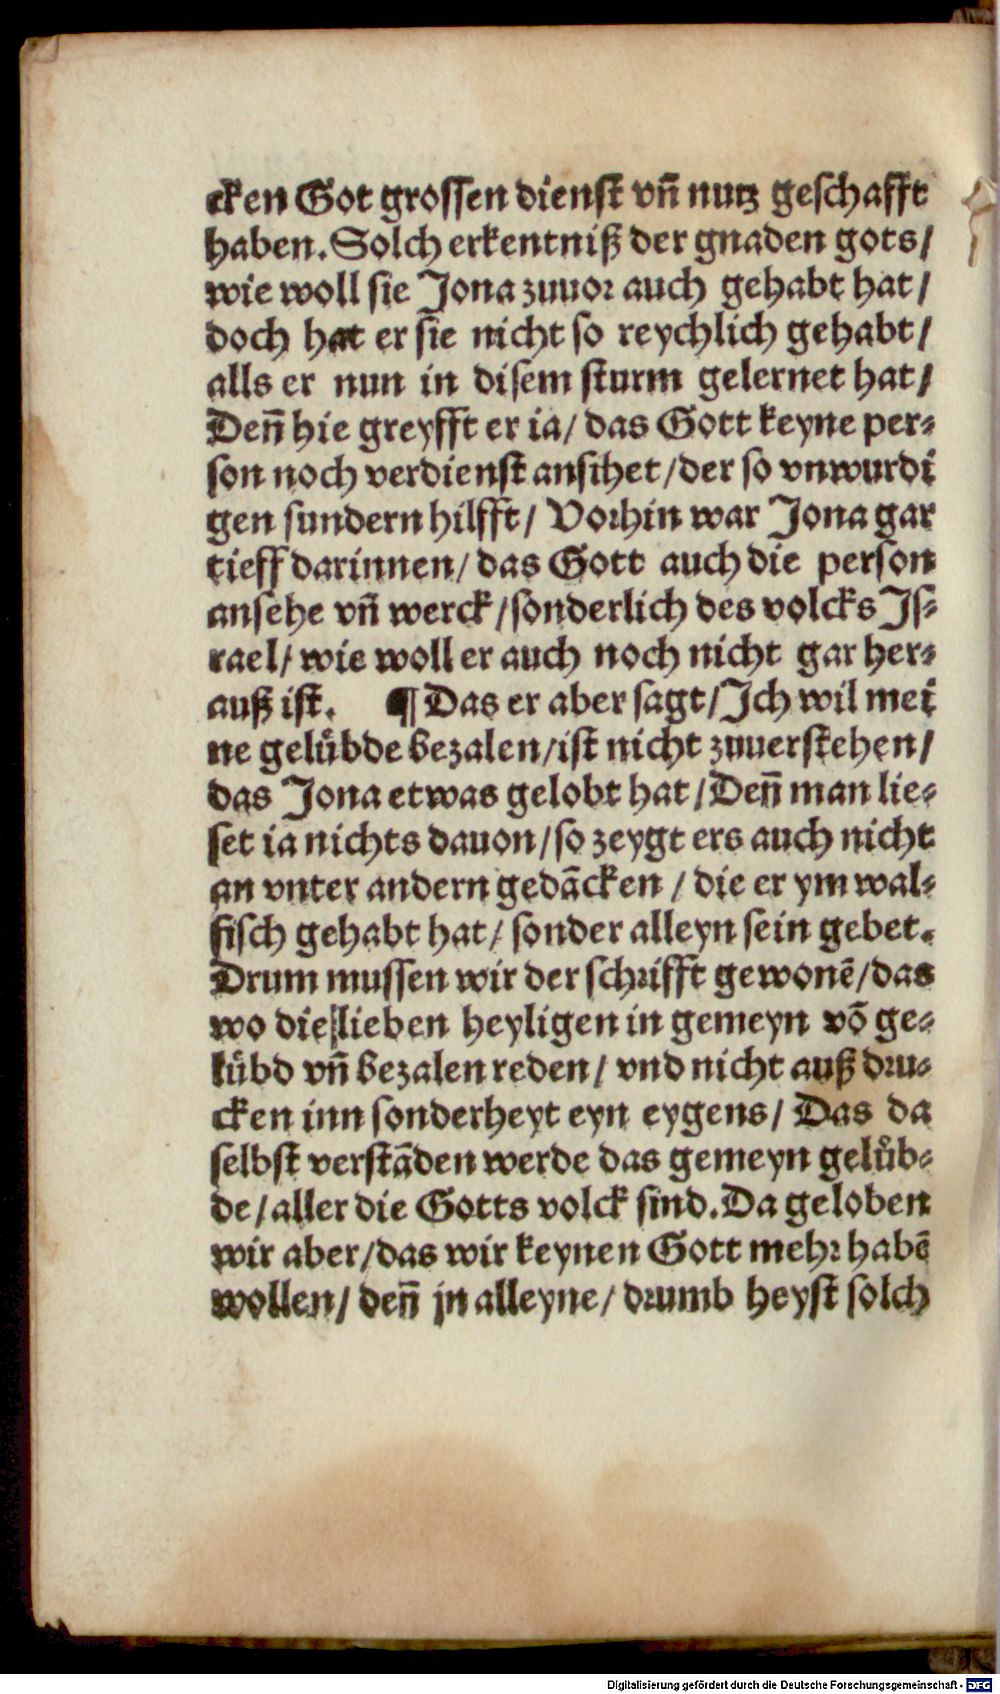 cken Got grossen dienst vñ nutz geschafft
haben. Solch erkentniß der gnaden gots/
wie woll sie Jona zuuor auch gehabt hat/
doch hat er sie nicht so reychlich gehabt/
alls er nun in disem sturm gelernet hat/
Deñ hie greyfft er ia/ das Gott keyne per-
son noch verdienst ansihet/der so vnwurdi
gen sundern hilfft/ Vorhin war Jona gar
tieff darinnen/ das Gott auch die person
ansehe vñ werck/sonderlich des volcks Is-
rael/ wie woll er auch noch nicht gar her-
auß ist. ¶ Das er aber sagt/Ich wil mei
ne gelübde bezalen/ist nicht zuuerstehen/
das Jona etwas gelobt hat/Deñ man lie-
set ia nichts dauon/so zeygt ers auch nicht
an vnter andern gedãcken / die er ym wal-
fisch gehabt hat/ sonder alleyn sein gebet.
Drum mussen wir der schrifft gewonẽ/das
wo die lieben heyligen in gemeyn võ ge-
lübd vñ bezalen reden/ vnd nicht auß dru-
cken inn sonderheyt eyn eygens/ Das da
selbst verstãden werde das gemeyn gelüb-
de/aller die Gotts volck sind. Da geloben
wir aber/das wir keynen Gott mehr habẽ
wollen/ deñ jn alleyne/ drumb heyst solch
Digitalisierung gefördert durch die Deutsche Forschungsgemeinschaft - DFG